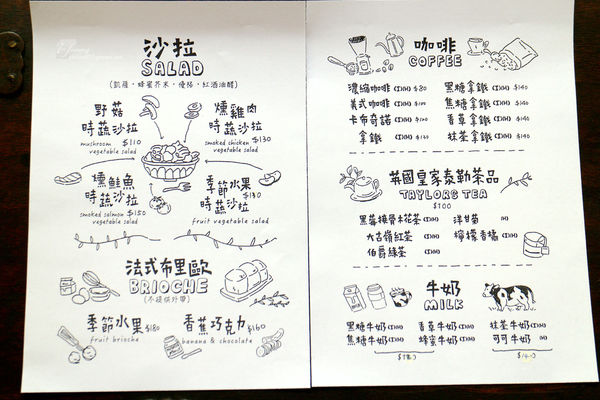 沙拉
SALAD
(凱薩·蜂蜜芥末·優格·紅酒油醋)
野菇
時蔬沙拉
mushroom $110
vegetable salad
燻雞肉
時蔬沙拉
smoked chicken $130
vegetable salad
燻鮭魚
時蔬沙拉
smoked salmon $150
vegetable salad
季節水果
時蔬沙拉 $130
fruit vegetable salad
法式布里歐
BRIOCHE
(不提供外帶)
季節水果 $180
fruit brioche
香蕉巧克力 $160
banana & chocolate
咖啡
COFFEE
濃縮咖啡 (I)(H) $80
美式咖啡 (I)(H) $100
卡布奇諾 (I)(H) $120
拿鐵 (I)(H) $120
黑糖拿鐵 (I)(H) $140
焦糖拿鐵 (I)(H) $140
香草拿鐵 (I)(H) $140
抹茶拿鐵 (I)(H) $140
英國皇家泰勒茶品
TAYLORS TEA
$100
黑莓接骨木花茶 (I)(H)
大吉嶺紅茶 (I)(H)
伯爵綠茶 (I)(H)
洋甘菊 (H)
檸檬香橘 (I)(H)
牛奶
MILK
黑糖牛奶 (I)(H)
焦糖牛奶 (I)(H)
香草牛奶 (I)(H)
蜂蜜牛奶 (I)(H)
抹茶牛奶 (I)(H)
可可牛奶 (H)